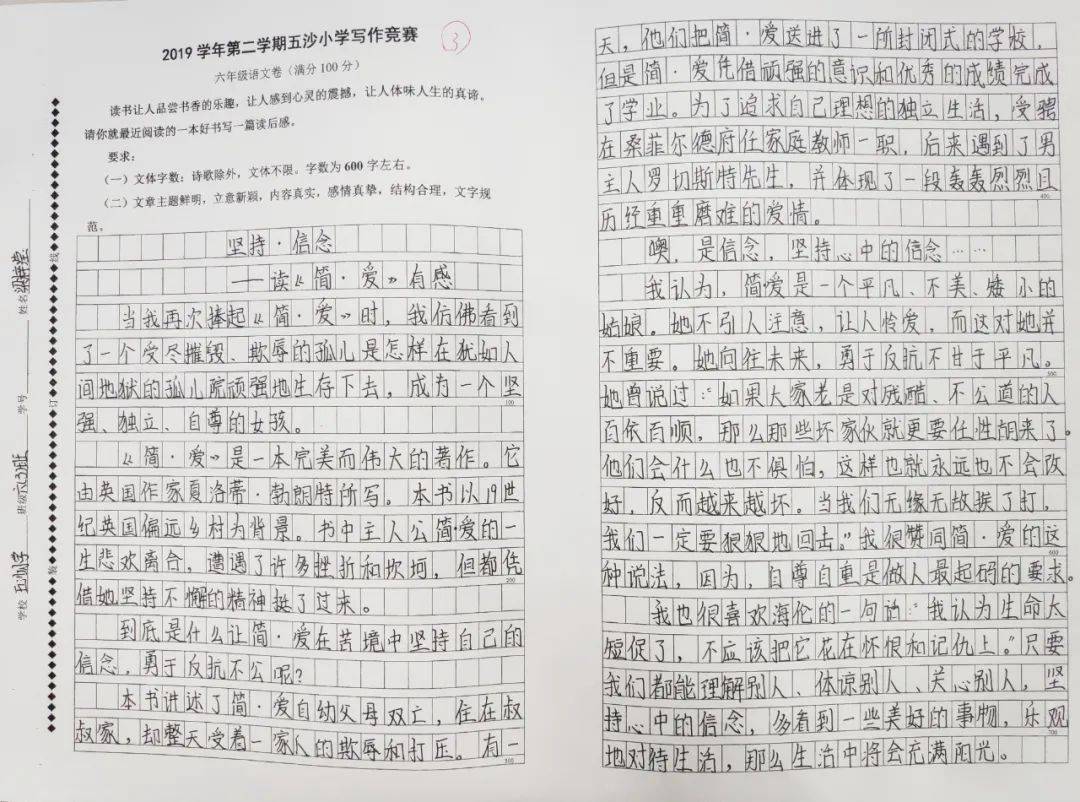 2019 学年第二学期五沙小学写作竞赛
3
六年级语文卷（满分100分）
读书让人品尝书香的乐趣，让人感到心灵的震撼，让人体味人生的真谛。
请你就最近阅读的一本好书写一篇读后感。
要求：
（一）文体字数：诗歌除外，文体不限。字数为600字左右。
（二）文章主题鲜明，立意新颖，内容真实，感情真挚，结构合理，文字规
范。
学校 五沙小学 班级 六(2)班 学号 姓名
装 订 线
坚持·信念
——读《简·爱》有感
当我再次捧起《简·爱》时，我仿佛看到
了一个受尽摧毁、欺辱的孤儿是怎样在犹如人
间地狱的孤儿院顽强地生存下去，成为一个坚
100
强、独立、自尊的女孩。
《简·爱》是一本完美而伟大的著作。它
由英国作家夏洛蒂·勃朗特所写。本书以19世
纪英国偏远乡村为背景。书中主人公简·爱的一
生悲欢离合，遭遇了许多挫折和坎坷，但都凭
200
借她坚持不懈的精神挺了过来。
到底是什么让简·爱在苦境中坚持自己的
信念，勇于反抗不公呢？
本书讲述了简·爱自幼父母双亡，住在叔
叔家，却整天受着一家人的欺辱和打压。有一
300
天，他们把简·爱送进了一所封闭式的学校，
但是简·爱凭借顽强的意识和优秀的成绩完成
了学业。为了追求自己理想的独立生活，受聘
在桑菲尔德府任家庭教师一职，后来遇到了男
主人罗切斯特先生，并体现了一段轰轰烈烈且
400
历经重重磨难的爱情。
噢，是信念，坚持心中的信念……
我认为，简爱是一个平凡、不美、矮小的
姑娘。她不引人注意，让人怜爱，而这对她并
不重要。她向往未来，勇于反抗不甘于平凡。
500
她曾说过：“如果大家老是对残酷、不公道的人
百依百顺，那么那些坏家伙就更要任性胡来了。
他们会什么也不俱怕，这样也就永远也不会改
好，反而越来越坏。当我们无缘无故挨了打，
我们一定要狠狠地回击。”我很赞同简·爱的这
600
种说法，因为，自尊自重是做人最起码的要求。
我也很喜欢海伦的一句话：“我认为生命太
短促了，不应该把它花在怀恨和记仇上。”只要
我们都能理解别人、体谅别人、关心别人，坚
持心中的信念，多看到一些美好的事物，乐观
700
地对待生活，那么生活中将会充满阳光。